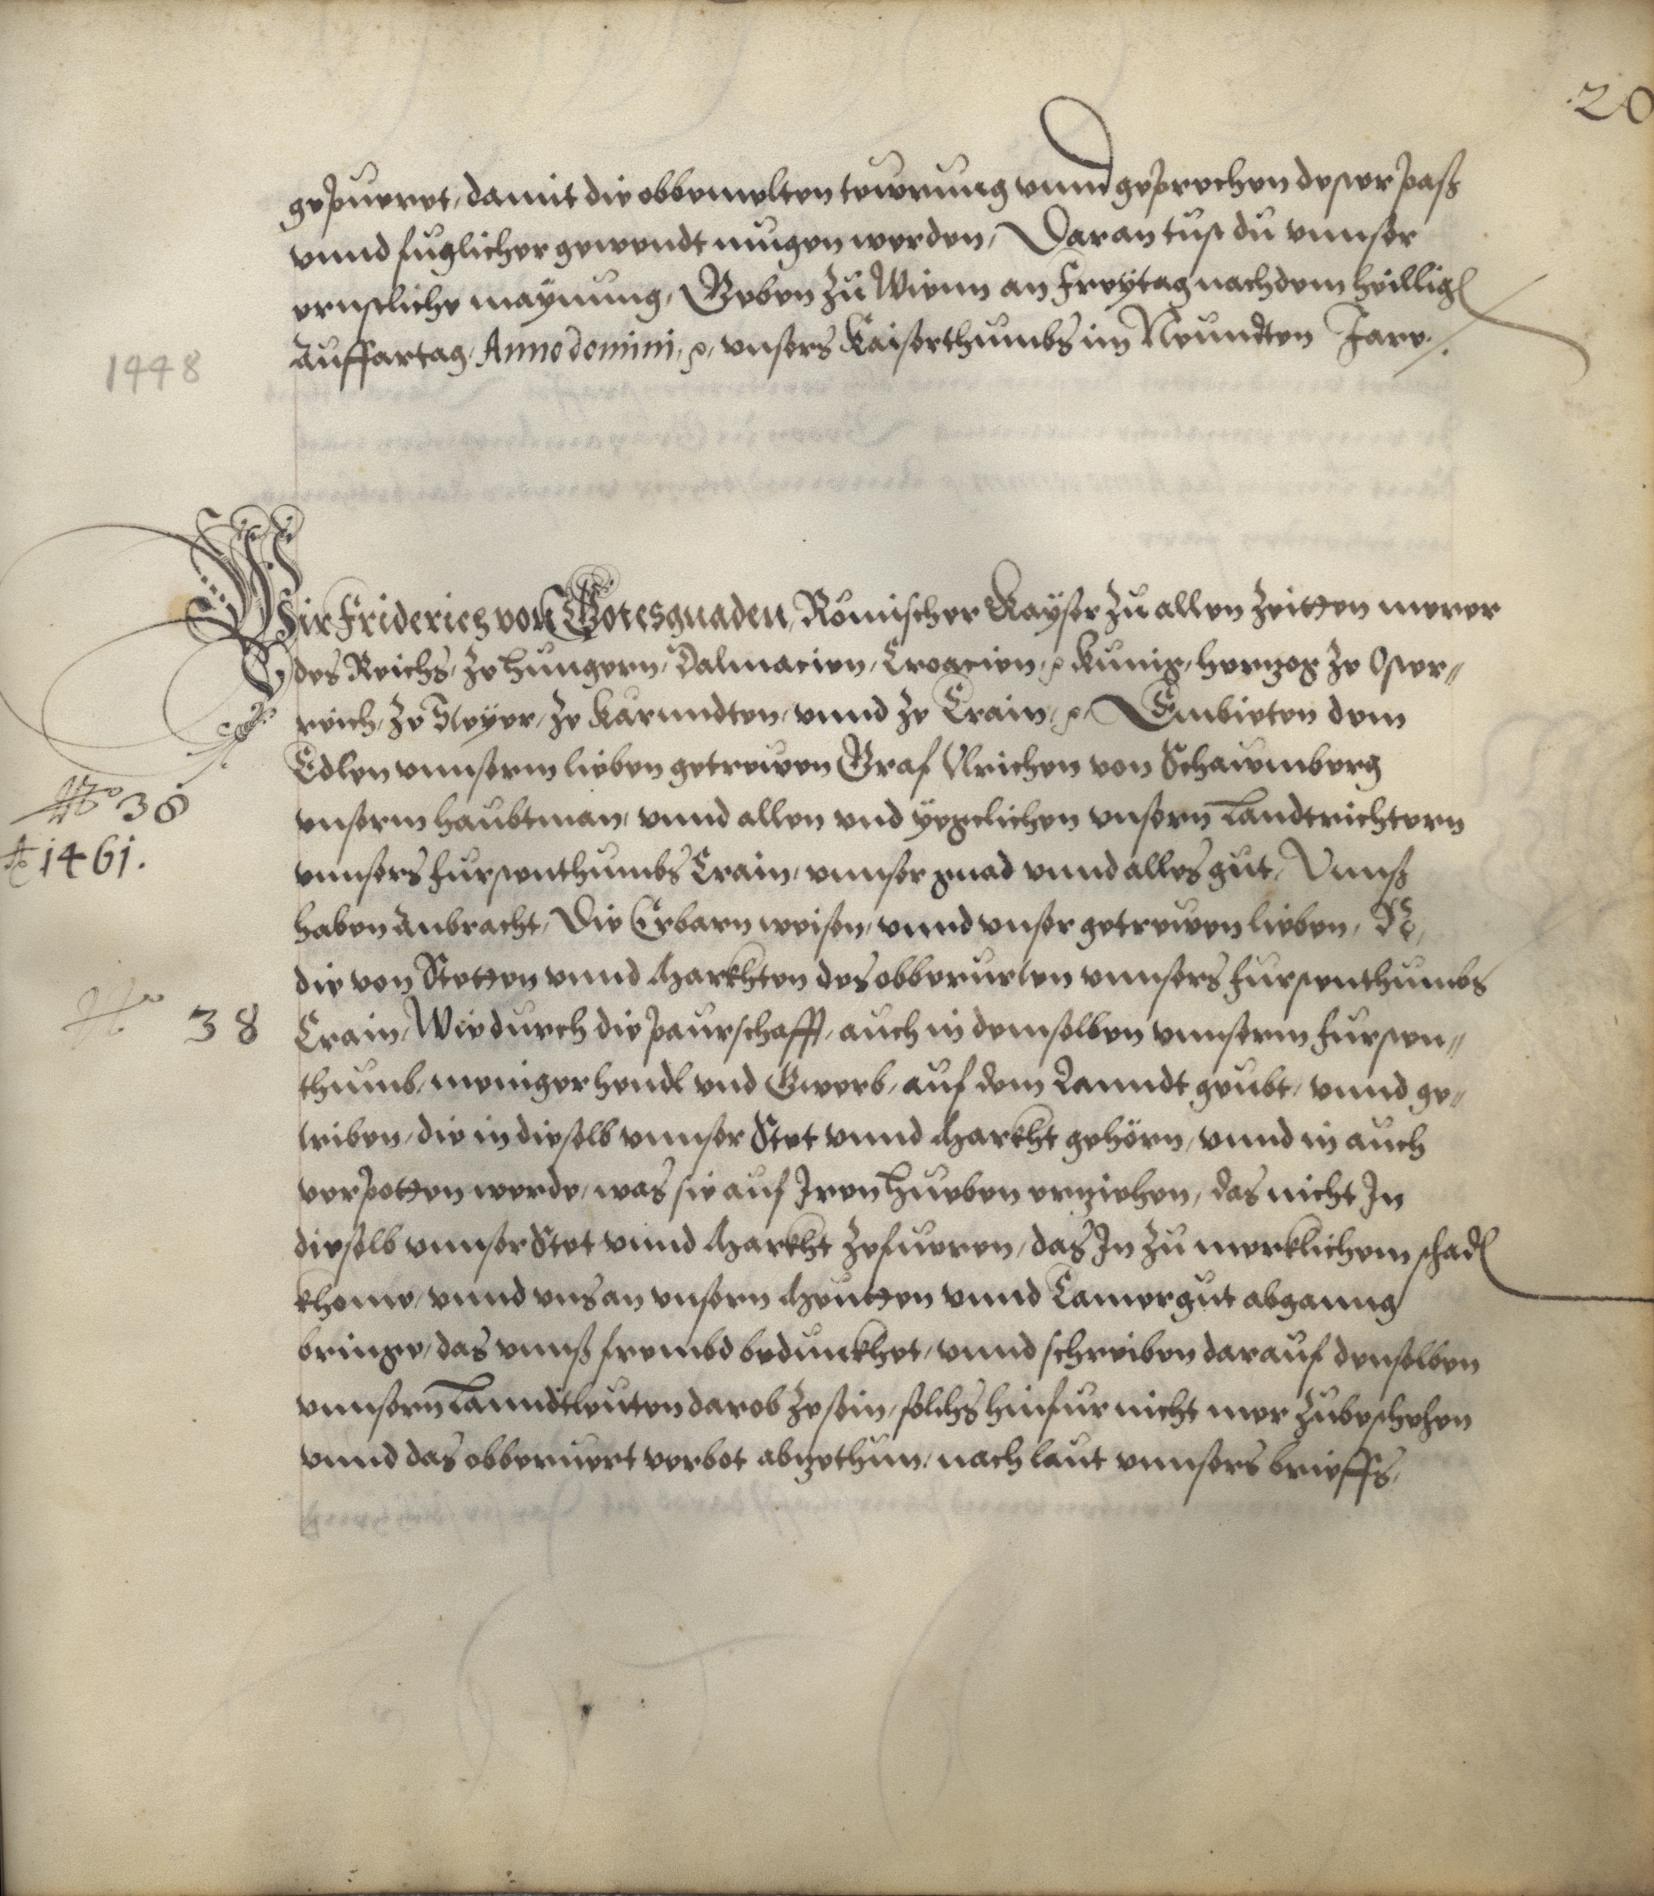 20
gespueret, damit die obbemelten tewrung vnnd gesprechen dester paß
vnnd fuglicher gewendt mugen werden, Daran tust du vnnser
ernstliche maynung, Geben zu Wienn an Freytag nach dem heillig[en]
Auffartag, Anno domini, [etc.], vnsers Kaiserthumbs im Neundten Jare.
1448
Wir Friderich von Gotes gnaden, Römischer Kayser zu allen zeitten merer
des Reichs, ze Hungern, Dalmacien, Croacien, [etc.] Kunig, hertzog ze Oster=
reich, ze Steyer, ze Karundten, vnnd ze Crain, [etc.], Embieten dem
Edlen vnnserm lieben getrewen Graf Vlrichen von Schawmberg
No 38
vnserm haubtman, vnnd allen vnd yegclichen vnsern Landtrichtern
Ao 1461.
vnnsers furstenthumbs Crain, vnnser gnad vnnd alles gut, Vnnß
haben anbracht, Die Erbarn weisen, vnnd vnser getrewen lieben, N.
die von Stetten vnnd Markhten des obberurten vnnsers furstenthumbs
No 38
Crain, Wie durch die paurschafft, auch in demselben vnnserm fursten=
thumb, meniger hendl vnd Gwerb, auf dem Lanndt geubt, vnnd ge=
triben, die in dieselb vnnser Stet vnnd Markht gehörn, vnnd in auch
verpotten werde, was sie auf Jren hueben erziehen, das nicht In
dieselb vnnser Stet vnnd Markht zefueren, das In zu merklichem schad[en]
khome, vnnd vns an vnsern Meutten vnnd Camergut abganng
bringe, das vnnß frembd bedunckhet, vnnd schreiben darauf denselben
vnnsern Lanndtleuten darob zesein, solchs hinfur nicht mer zubeschehen
vnnd das obberuert verbot abzethun, nach laut vnnsers brieffs,